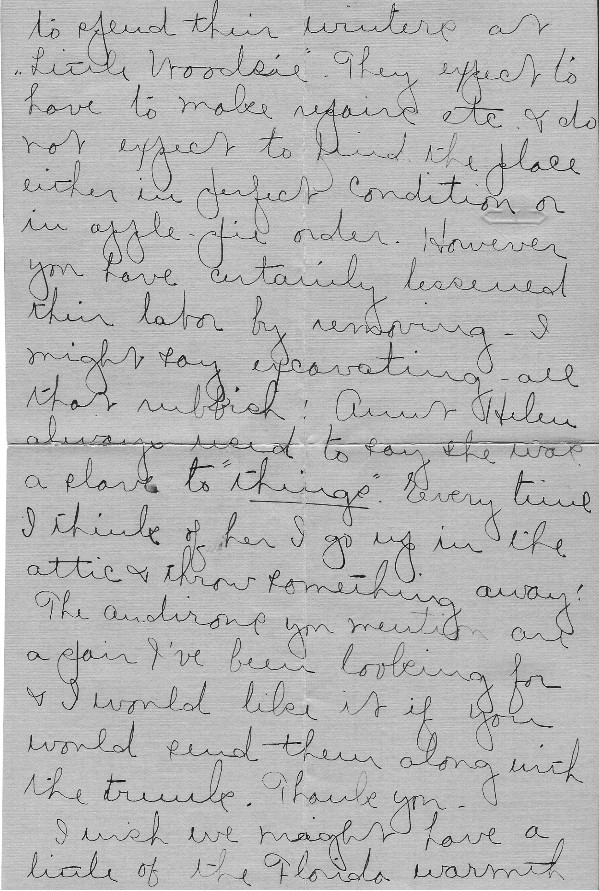 to spend their winters at
"Little Woodsie". They expect to
have to make repairs etc. & do
not expect to find the place
either in perfect condition or
in apple-pie order. However
you have certainly lessened
their labor by removing - I
might say excavating - all
that rubbish! Aunt Helen
always used to say she was
a slave to "things". Every time
I think of her I go up in the
attic & throw something away!
The andirons you mention are
a pair I've been looking for
& I would like it if you
would send them along with
the trunk. Thank you -
I wish we might have a
little of the Florida warmth